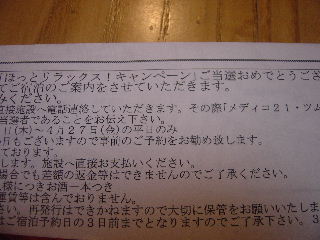 ほっとリラックス！キャンペーン」ご当選おめでとうござ
てご宿泊のご案内をさせていただきます。
みください。
直接施設へ電話連絡していただきます。その際「メディコ２１・ツム
当選者であることをお伝え下さい。
日(木)～４月２７日(金)の平日のみ
もございますので事前のご予約をお勧め致します。
ております。
します。施設へ直接お支払いください。
場合でも差額の返金等はできませんのでご了承ください。
様につきお酒一本つき
運賃等は含んでおりません。
さい。再発行はできかねますので大切に保管をお願いいたしま
はご宿泊予約日の３日前までとなりますのでご了承下さい。３